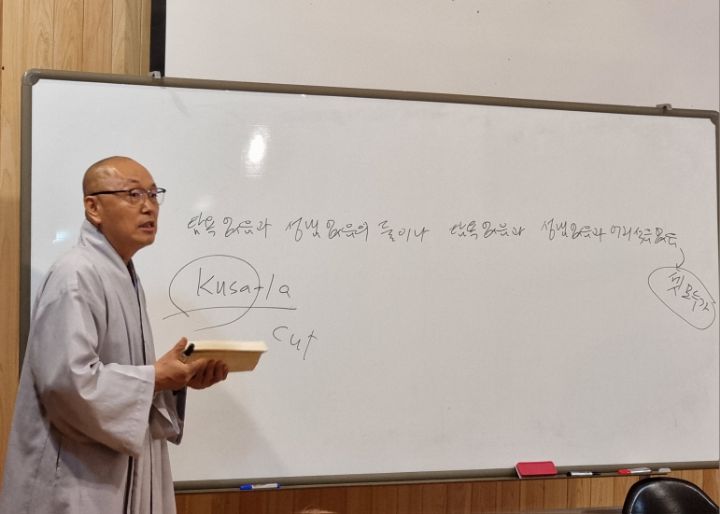 탐욕없음과 성냄없음의 둘이나 탐욕없음과 성냄없음과 어리석음없음
Kusa+la
cut